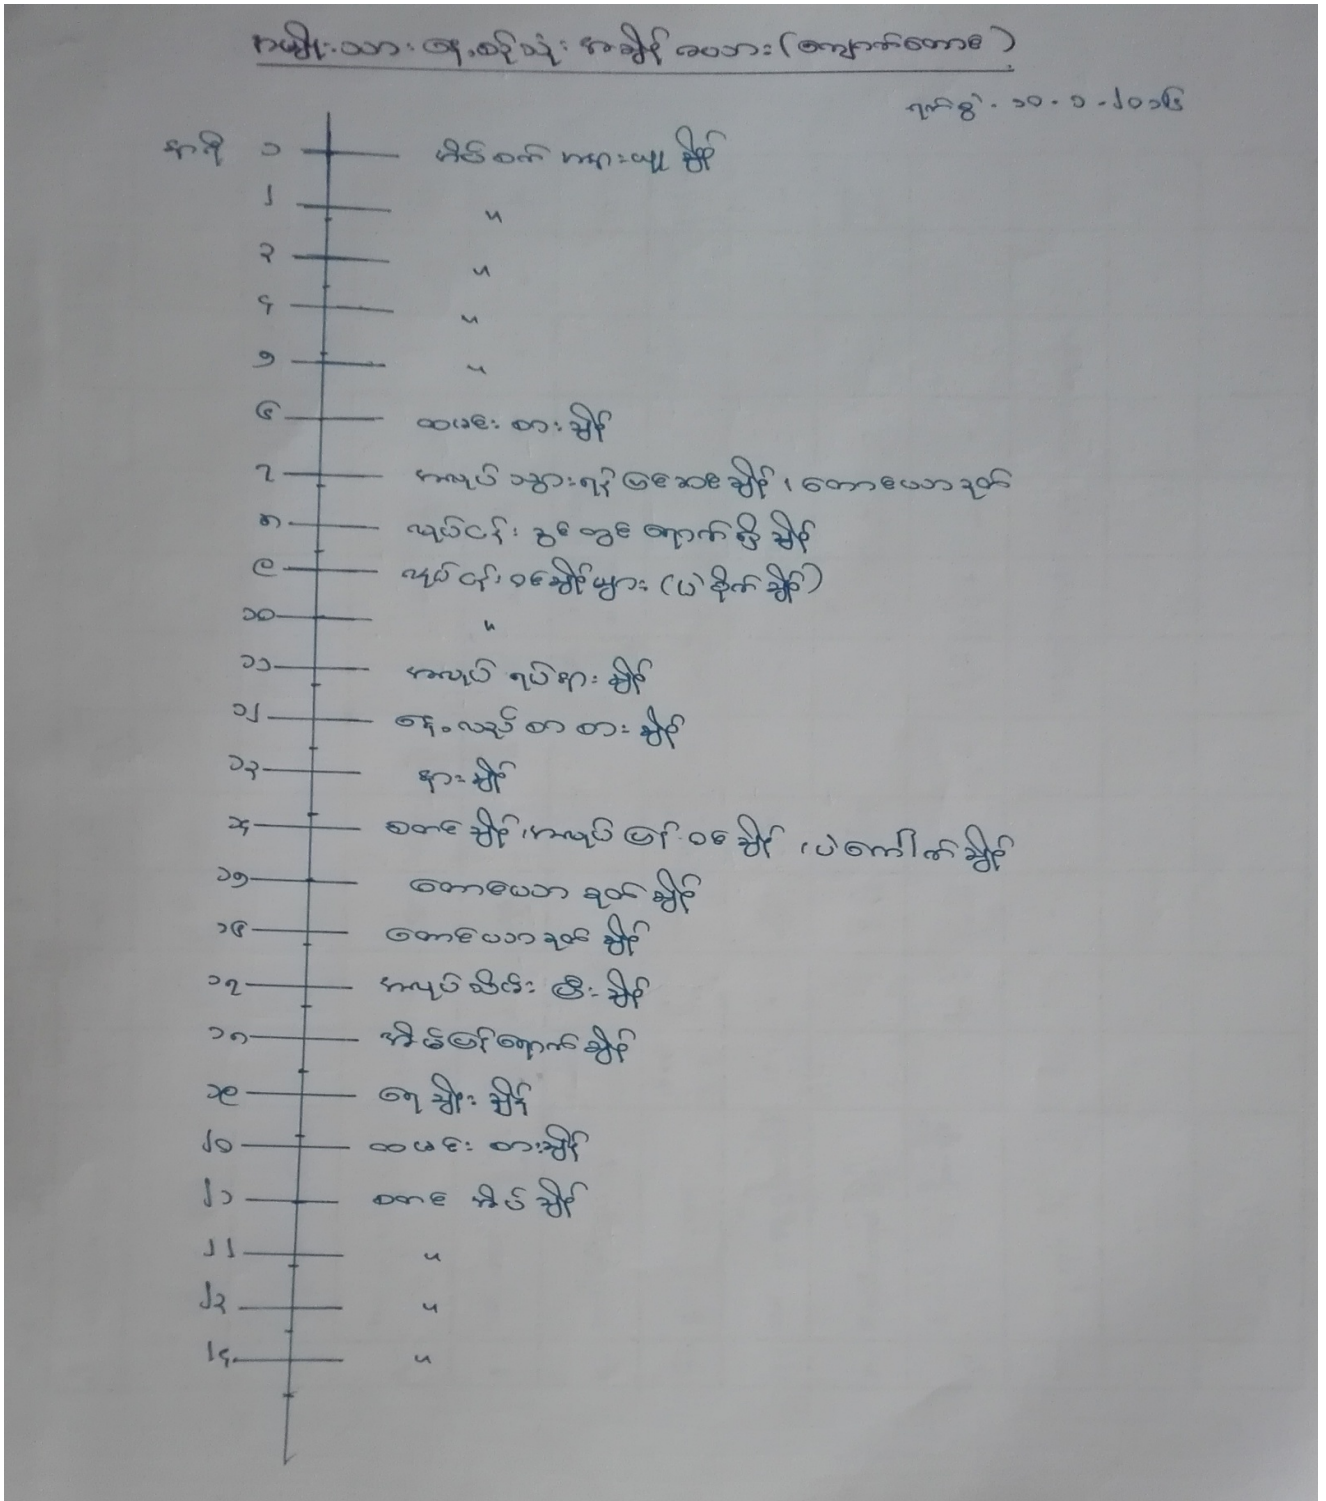 အမျိုးသားနေ့စဉ်သုံးအချိန်ဇယား (ကျောက်တောင်)
ရက်စွဲ - ၁၀-၁-၂၀၁၆
နာရီ ၁ အိပ်စက်အနားယူချိန်
၂ "
၃ "
၄ "
၅ "
၆ ထမင်းစားချိန်
၇ အလုပ်သွားရန်ပြင်ဆင်ချိန်၊ တောင်ယာခုတ်
၈ လုပ်ငန်းခွင်တွင်ရောက်ရှိချိန်
၉ လုပ်ငန်းဝင်ချိန်များ (ပဲစိုက်ချိန်)
၁၀ "
၁၁ အလုပ်ရပ်နားချိန်
၁၂ နေ့လည်စာစားချိန်
၁၃ နားချိန်
၁၄ စတင်ချိန်၊ အလုပ်ပြန်ဝင်ချိန်၊ ပဲကောက်ချိန်
၁၅ တောင်ယာခုတ်ချိန်
၁၆ တောင်ယာခုတ်ချိန်
၁၇ အလုပ်သိမ်းပြီးချိန်
၁၈ အိမ်ပြန်ရောက်ချိန်
၁၉ ရေချိုးချိန်
၂၀ ထမင်းစားချိန်
၂၁ စတင်အိပ်ချိန်
၂၂ "
၂၃ "
၂၄ "